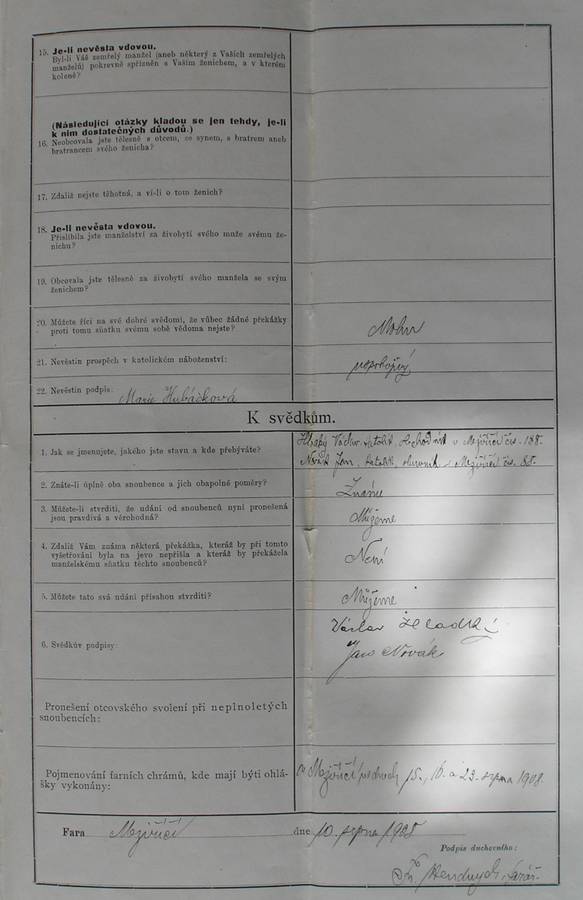 15. Je-li nevěsta vdovou.
Byl-li Váš zemřelý manžel (aneb některý z Vašich zemřelých
manželů) pokrevně spřízněn s Vaším ženichem, a v kterém
koleně?
(Následující otázky kladou se jen tehdy, je-li
k nim dostatečných důvodů.)
16. Neobcovala jste tělesně s otcem, se synem, s bratrem aneb
bratrancem svého ženicha?
17. Zdaliž nejste těhotná, a ví-li o tom ženich?
18. Je-li nevěsta vdovou.
Přislíbila jste manželství za živobytí svého muže svému že-
nichu?
19. Obcovala jste tělesně za živobytí svého manžela se svým
ženichem?
20. Můžete říci na své dobré svědomí, že vůbec žádné překážky
proti tomu sňatku svému sobě vědoma nejste?
Mohu
21. Nevěstin prospěch v katolickém náboženství:
22. Nevěstin podpis: Marie Hubáčková
K svědkům.
1. Jak se jmenujete, jakého jste stavu a kde přebýváte?
Václav, katolík, obchodník v Meziříčí čis. 188.
Novák Jan, katolík, v Meziříčí čis. 88.
2. Znáte-li úplně oba snoubence a jich obapolné poměry?
Známe
3. Můžete-li stvrditi, že udání od snoubenců nyní pronešená
jsou pravdivá a věrohodná?
Můžeme
4. Zdaliž Vám známa některá překážka, kteráž by při tomto
vyšetřování byla na jevo nepřišla a kteráž by překážela
manželskému sňatku těchto snoubenců?
Není
5. Můžete tato svá udání přísahou stvrditi?
Můžeme
6. Svědkův podpisy:
Václav Hladký
Jan Novák
Pronešení otcovského svolení při neplnoletých
snoubencích:
Pojmenování farních chrámů, kde mají býti ohlá-
šky vykonány:
v Meziříčí 15., 16. a 23. srpna 1908.
Fara Meziříčí dne 10. srpna 1908
Podpis duchovního: